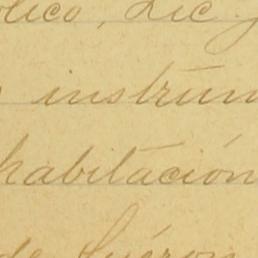 blico, Lic.
instrum
habitación
de